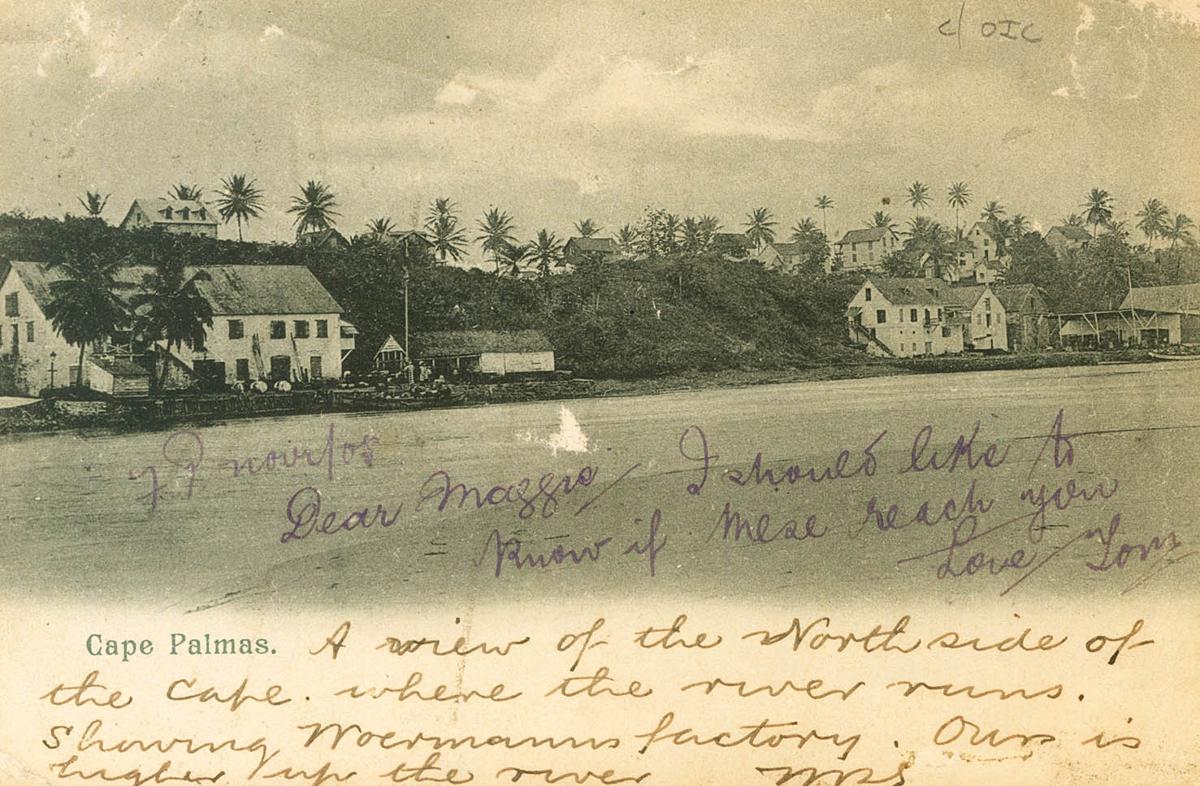 c/ OIC
Dear Maggie / I should like to
know if these reach you
Love / Tom
Cape Palmas. A view of the North side of
the Cape. where the river runs.
Showing Woermanns factory. Ours is
higher up the river